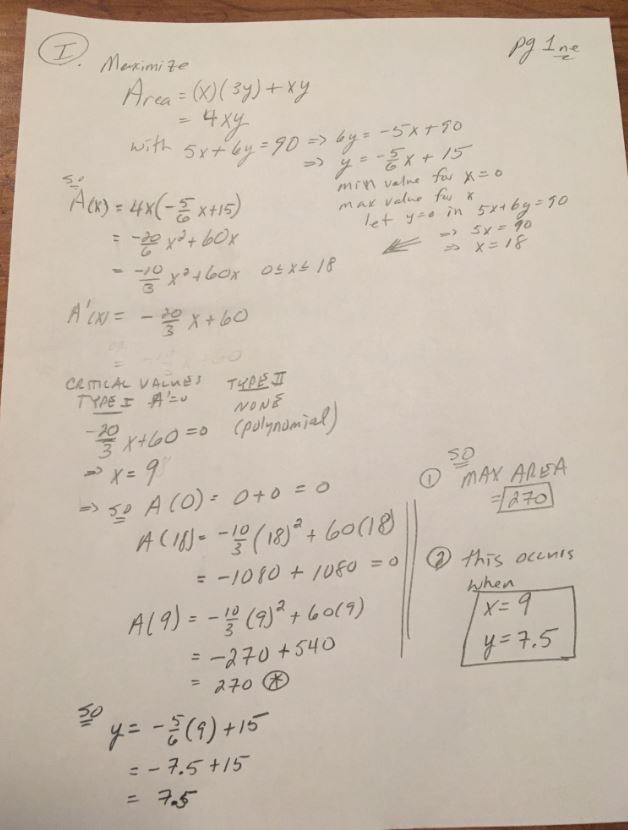 I. Maximize
pg 1ne
Area = (x)(3y) + xy
= 4xy
with 5x + 6y = 90 ⇒ 6y = -5x + 90
⇒ y = -5/6 x + 15
min value for x = 0
max value for x
let y=0 in 5x + 6y = 90
⇒ 5x = 90
⇒ x = 18
so
A(x) = 4x(-5/6 x + 15)
= -20/6 x² + 60x
= -10/3 x² + 60x 0 ≤ x ≤ 18
A'(x) = -20/3 x + 60
CRITICAL VALUES
TYPE I A'=0
TYPE II
NONE
(polynomial)
-20/3 x + 60 = 0
⇒ x = 9
⇒ so A(0) = 0 + 0 = 0
A(18) = -10/3 (18)² + 60(18)
= -1080 + 1080 = 0
A(9) = -10/3 (9)² + 60(9)
= -270 + 540
= 270 *
so
y = -5/6 (9) + 15
= -7.5 + 15
= 7.5
so
① MAX AREA
= 270
② this occurs
when
x = 9
y = 7.5